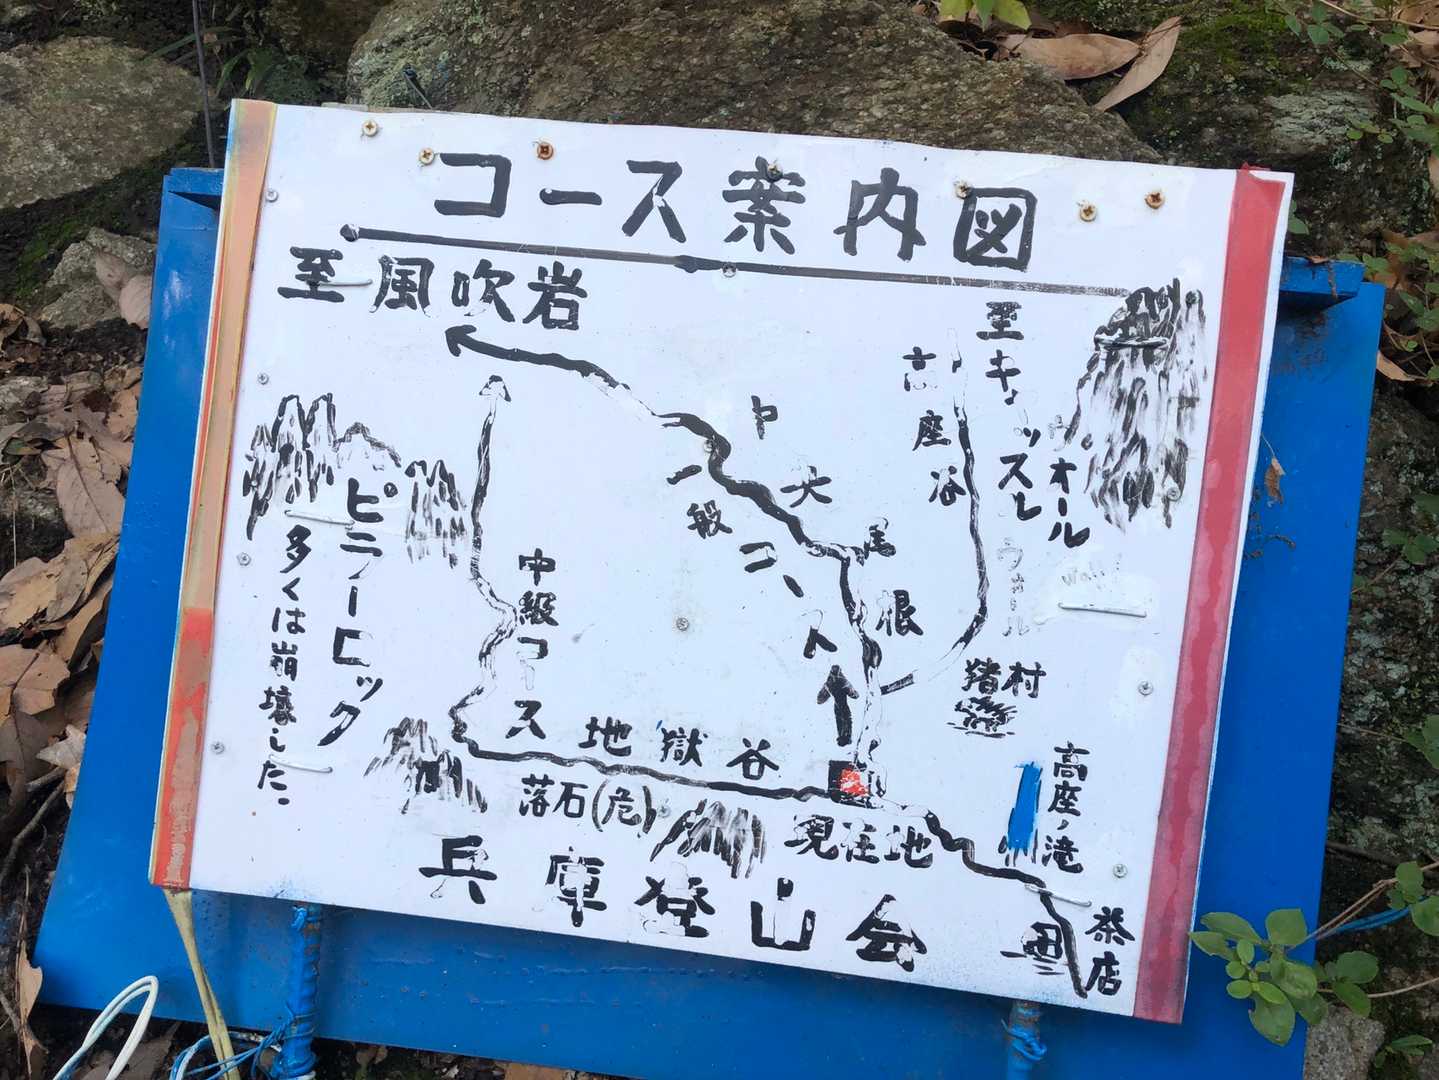 コース案内図
至 風吹岩
至キャッスル
ウォール
ウォール
wall
高座谷
中央尾根
一般コート
中級コース
ピラーロック
多くは崩壊した。
猪村
地獄谷
落石(危)
現在地
高座ノ滝
茶店
兵庫登山会